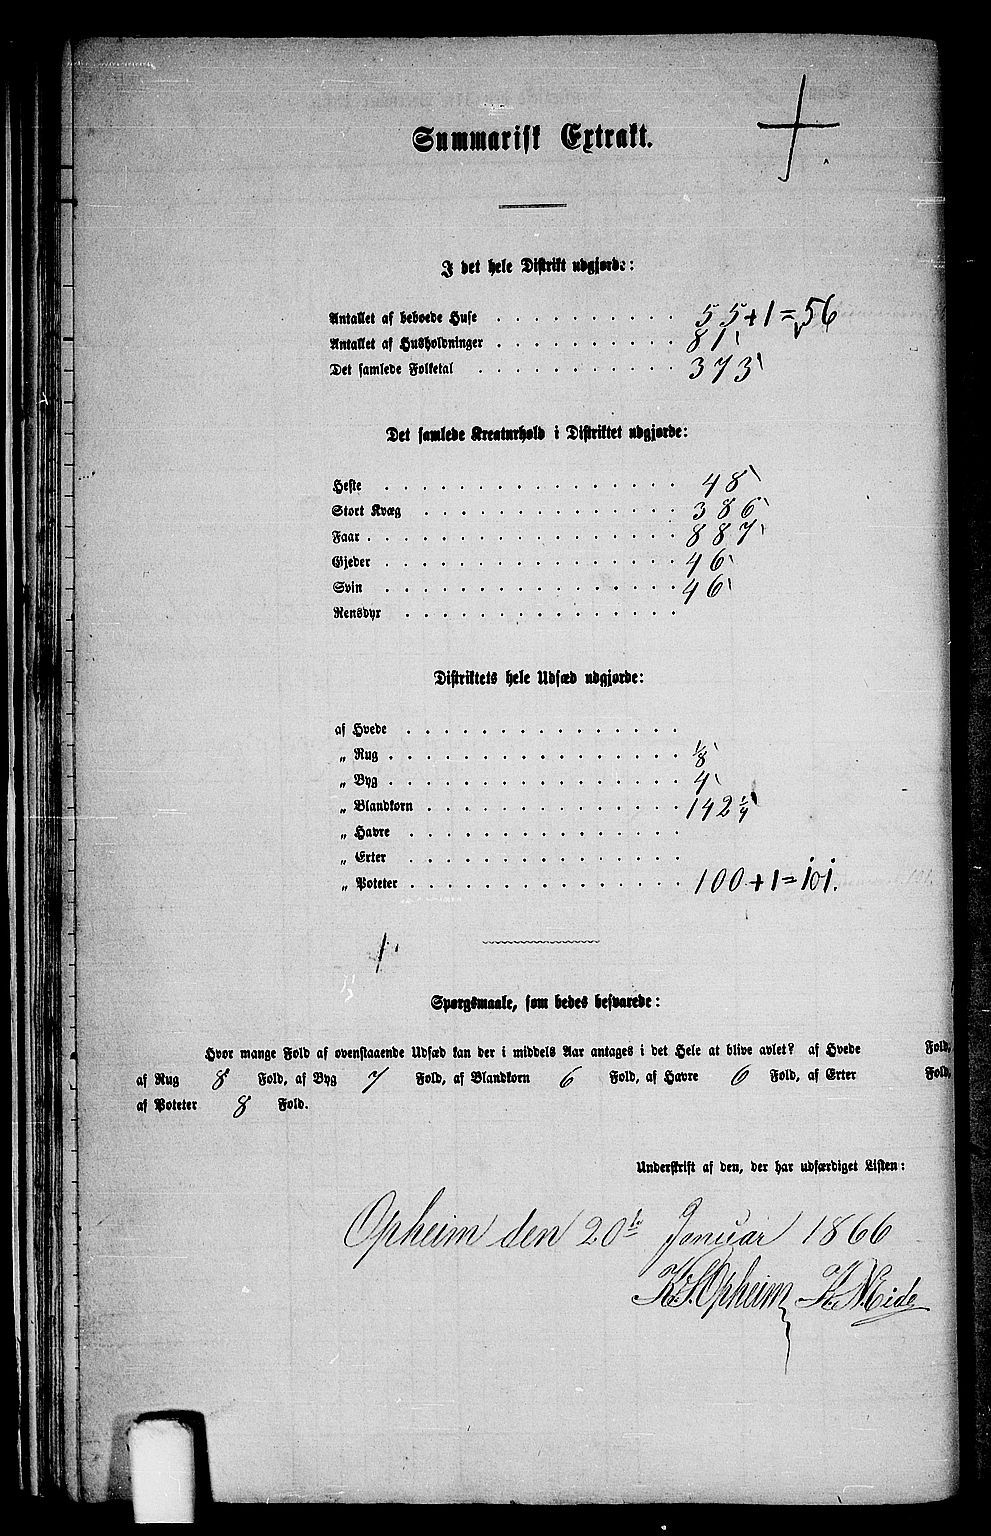 Summarisk Extrakt.
I det hele Distrikt udgjorde:
Antallet af beboede Huse . . . . . . . . . . 55+1=56
Antallet af Husholdninger . . . . . . . . . . 81
Det samlede Folketal . . . . . . . . . . . 373
Det samlede Kreaturhold i Distriktet udgjorde:
Heste . . . . . . . . . . . . . . . 48
Stort Kvæg . . . . . . . . . . . . . 386
Faar . . . . . . . . . . . . . . . . 887
Gjeder . . . . . . . . . . . . . . . 46
Svin . . . . . . . . . . . . . . . 46
Rensdyr . . . . . . . . . . . . . .
Distriktets hele Udsæd udgjorde:
af Hvede . . . . . . . . . . . . . .
„ Rug . . . . . . . . . . . . . . . 1/8
„ Byg . . . . . . . . . . . . . . . 4
„ Blandkorn . . . . . . . . . . . . . 142 1/4
„ Havre . . . . . . . . . . . . . .
„ Erter . . . . . . . . . . . . . .
„ Poteter . . . . . . . . . . . . . . 100+1=101.
Spørgsmaale, som bedes besvarede:
Hvor mange Fold af ovenstaaende Udsæd kan der i middels Aar antages i det Hele at blive avlet? af Hvede Fold,
af Rug 8 Fold, af Byg 7 Fold, af Blandkorn 6 Fold, af Havre 6 Fold, af Erter Fold,
af Poteter 8 Fold.
Underskrift af den, der har udfærdiget Listen:
Opheim den 20de Januar 1866
K.S. Opheim K N Eide